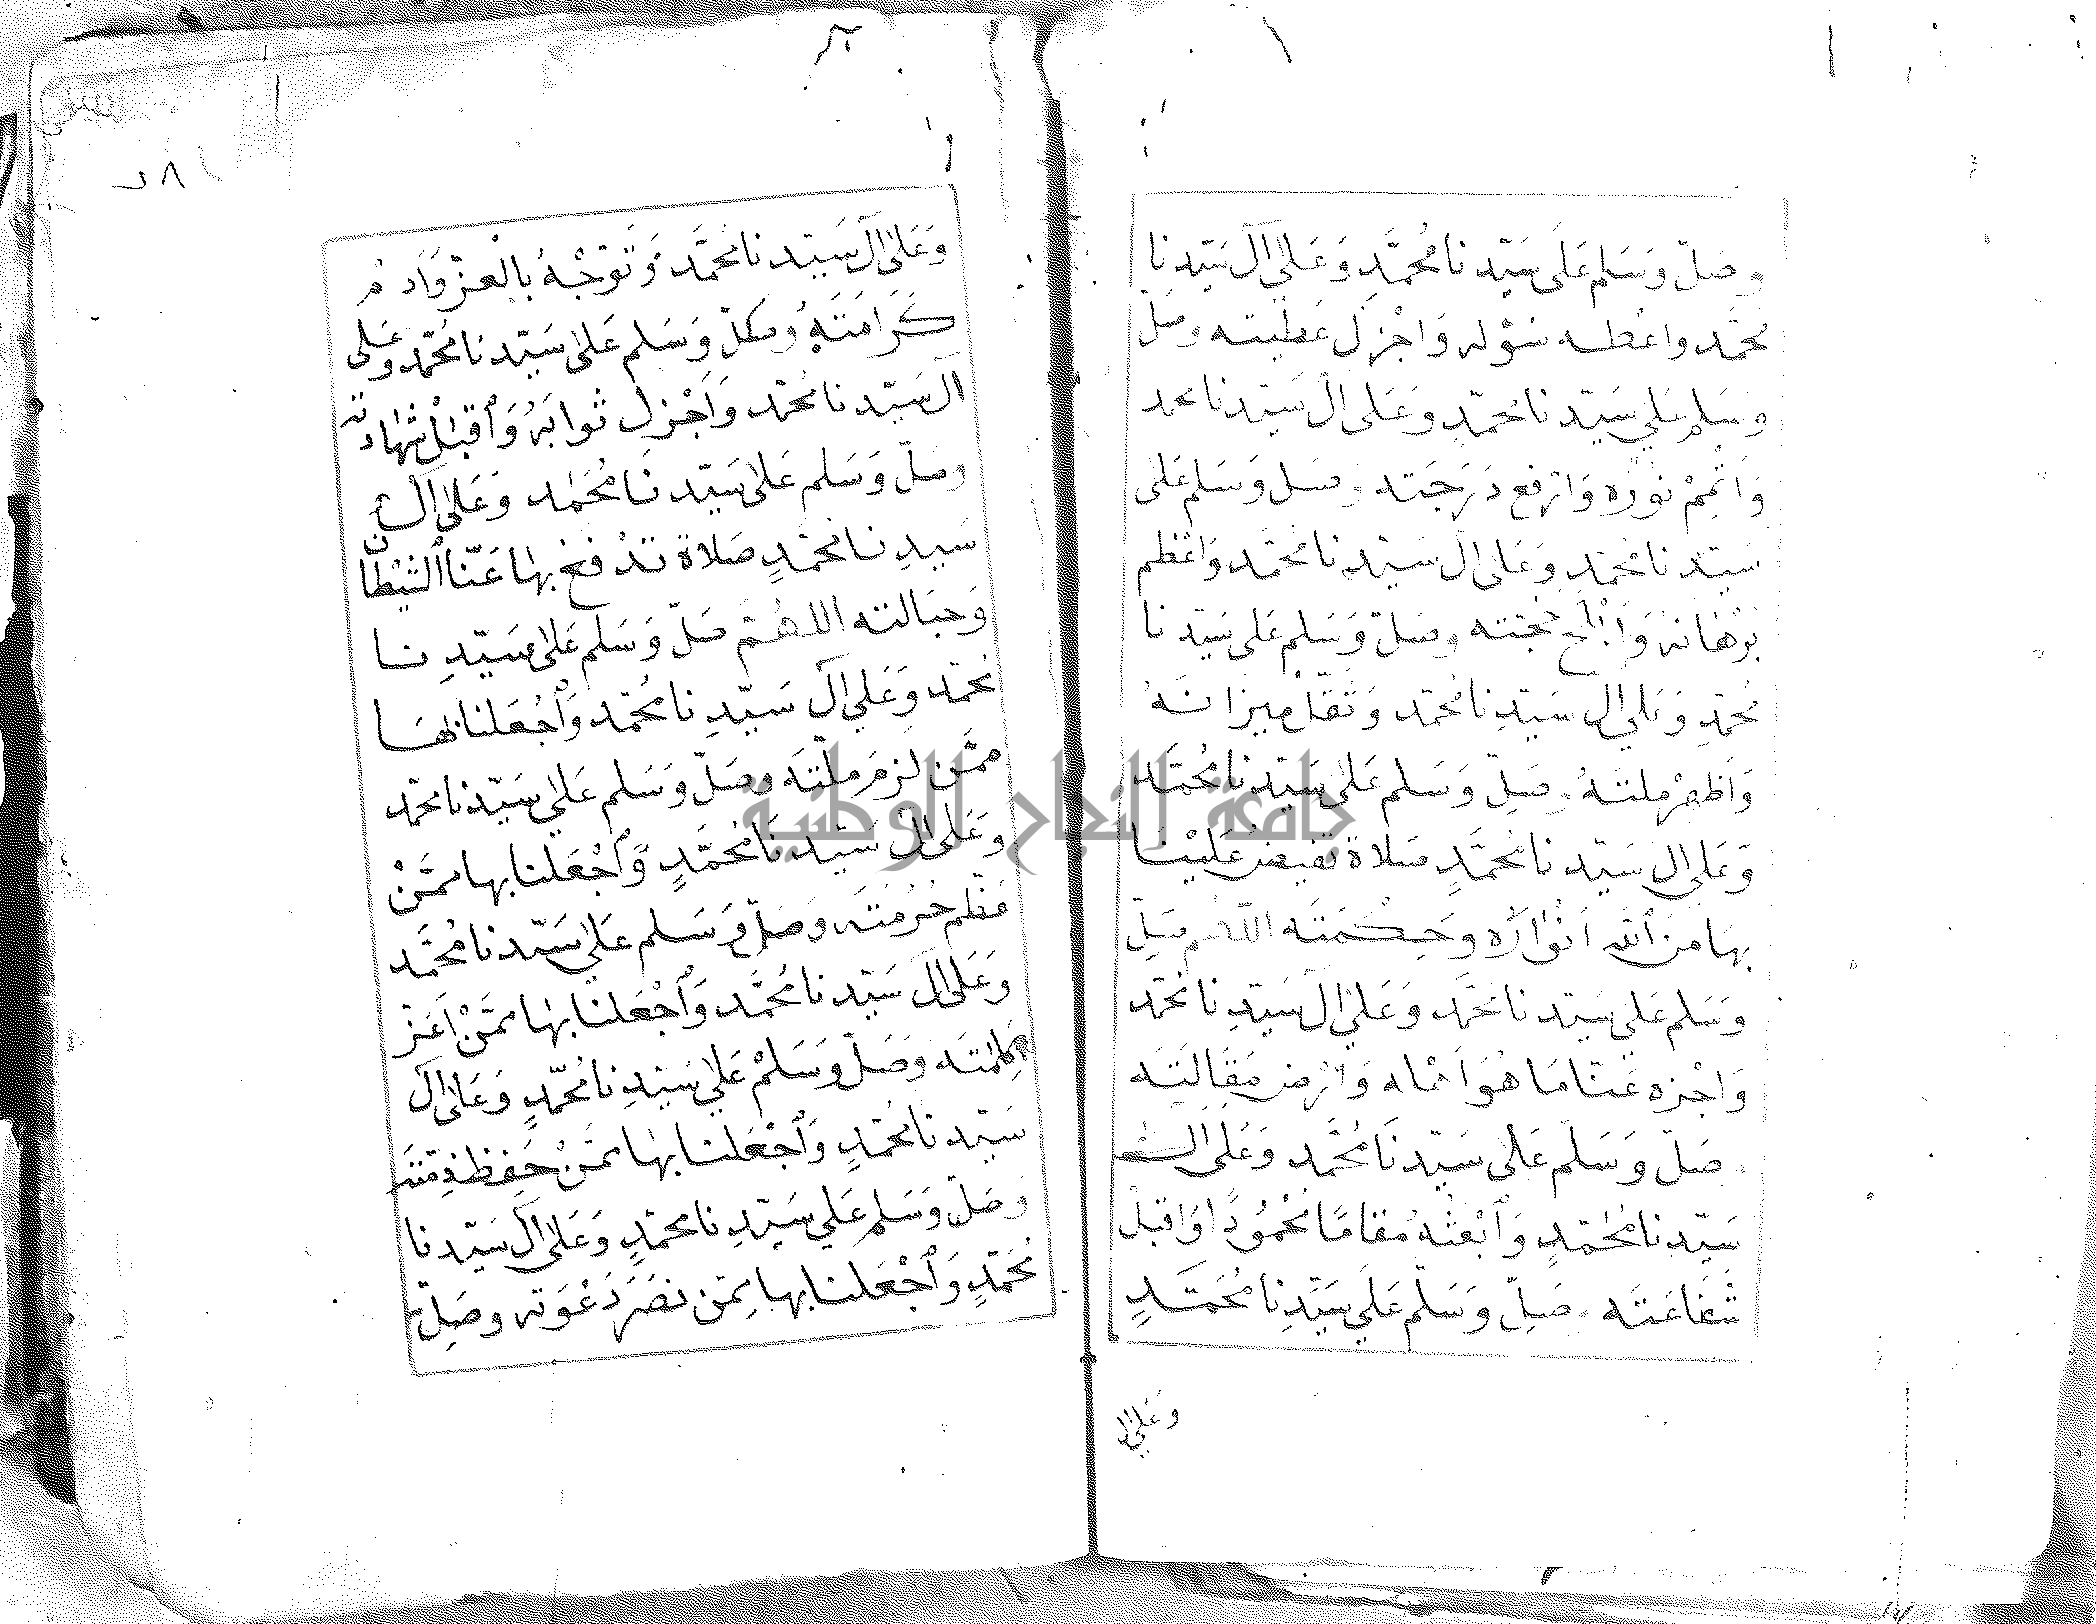 وصلّ وَسَلم عَلَى سَيّدِنا مُحمَّدٍ وَعَلىٰ اٰل سَيّدِنا
مُحَمَّد واعْطه سُؤله وَاجْزل عَطيته وصلّ
وَسَلم عَلي سَيّدِنا مُحمَّدٍ وَعَلى اٰل سَيّدنا محمد
وَاتْمِمْ نوره وَارفع دَرَجَته وصل وَسَلم عَلى
سَيّدنا مُحَمّدٍ وَعَلى اٰل سَيّدنا مُحَمَّد وَاعْظم
بُرْهَانهُ وَابلج حُجّته وصلّ وَسَلم عَلى سَيّدنا
مُحمّدٍ وَعَلي ال سَيّدِنا مُحمّد وَثَقّل ميزانَهُ
وَاَظهرْ ملتَهُ وصلِّ وَسَلم عَلىٰ سَيّدِنا مُحَمَّد
وَعَلي ال سَيّدنا مُحَمَّدٍ صَلاة تفيض عَلَيْنا
بهَا مِن ٱللّه اَنْوارُه وَحِكمَتَه اللّهُم صَلِّ
وَسَلم عَلي سَيّدنا مُحَمَّد وَعَليٰ اٰل سَيّدِنا مُحَمَّد
وَاجْزه عَنّا مَا هُوَ اَهْله وَارْض مَقَالَتِه
وصَلّ وَسَلّم عَلىٰ سَيّدنَا مُحَمَّد وَعَلى ال
سَيّدنا مُحَمّدٍ وَٱبْعَثْهُ مَقامًا مَحْمُودًا وَاقبل
شَفَاعَتَه وصَلِّ وَسَلّم عَلَي سَيّدِنا مُحَمَّدٍ
وَعَليٰ ال
وَعَلىٰ اٰل سَيّدنا مُحَمَّد وَتَوّجْهُ بالْعزّ وَادم
كَرَامَتَهُ وصَلّ وَسَلم عَلىٰ سَيّدنا مُحَمّد وَعَلى
اٰل سَيّدنا مُحَمّد وَاَجْزل ثوابَهُ وَٱقبَلْ شَهادته
وصَلّ وَسَلم عَلىٰ سَيّدنا مُحَمَّد وَعَلىٰ اٰل
سَيدِنا مُحَمَّدٍ صَلاة تدْفع بهٰا عَنّا ٱلشيْطان
وَحبَالته اللهُمّ صَلّ وَسَلم عَلىٰ سَيّدِنا
مُحَمّد وَعَلي اٰل سَيّدِنا مُحَمّد وَٱجْعَلنا بهَا
ممّن لزمَ ملّتَه وصَلّ وَسَلم عَلىٰ سَيّدنا محمّد
وَعَلى اٰل سَيّدنَا مُحَمَّدٍ وَٱجْعَلنا بها ممَّنْ
عَظّم حُرْمَتَه وصَلّ وَسَلم عَلىٰ سَيّدنا مُحَمَّد
وَعَلى اٰل سَيّدنا مُحَمَّد وَٱجْعَلنا بهٰا ممَّنْ اَعَز
كلِمَتَه وَصَلّ وَسَلمْ عَلي سَيّدِنا مُحَمَّدٍ وَعَلىٰ اٰل
سَيّدنا مُحَمَّدٍ وَٱجْعَلنا بهٰا ممَّنْ حَفِظ ذِمّتَه
وَصَلّ وَسَلم عَلي سَيّدِنا مُحَمَّدٍ وَعَلىٰ اٰل سَيّدنا
مُحَمَّدٍ وَٱجْعَلنا بها مِمَّن نصَرَ دَعْوَته وصَلِّ
جامعة النجاح الوطنية